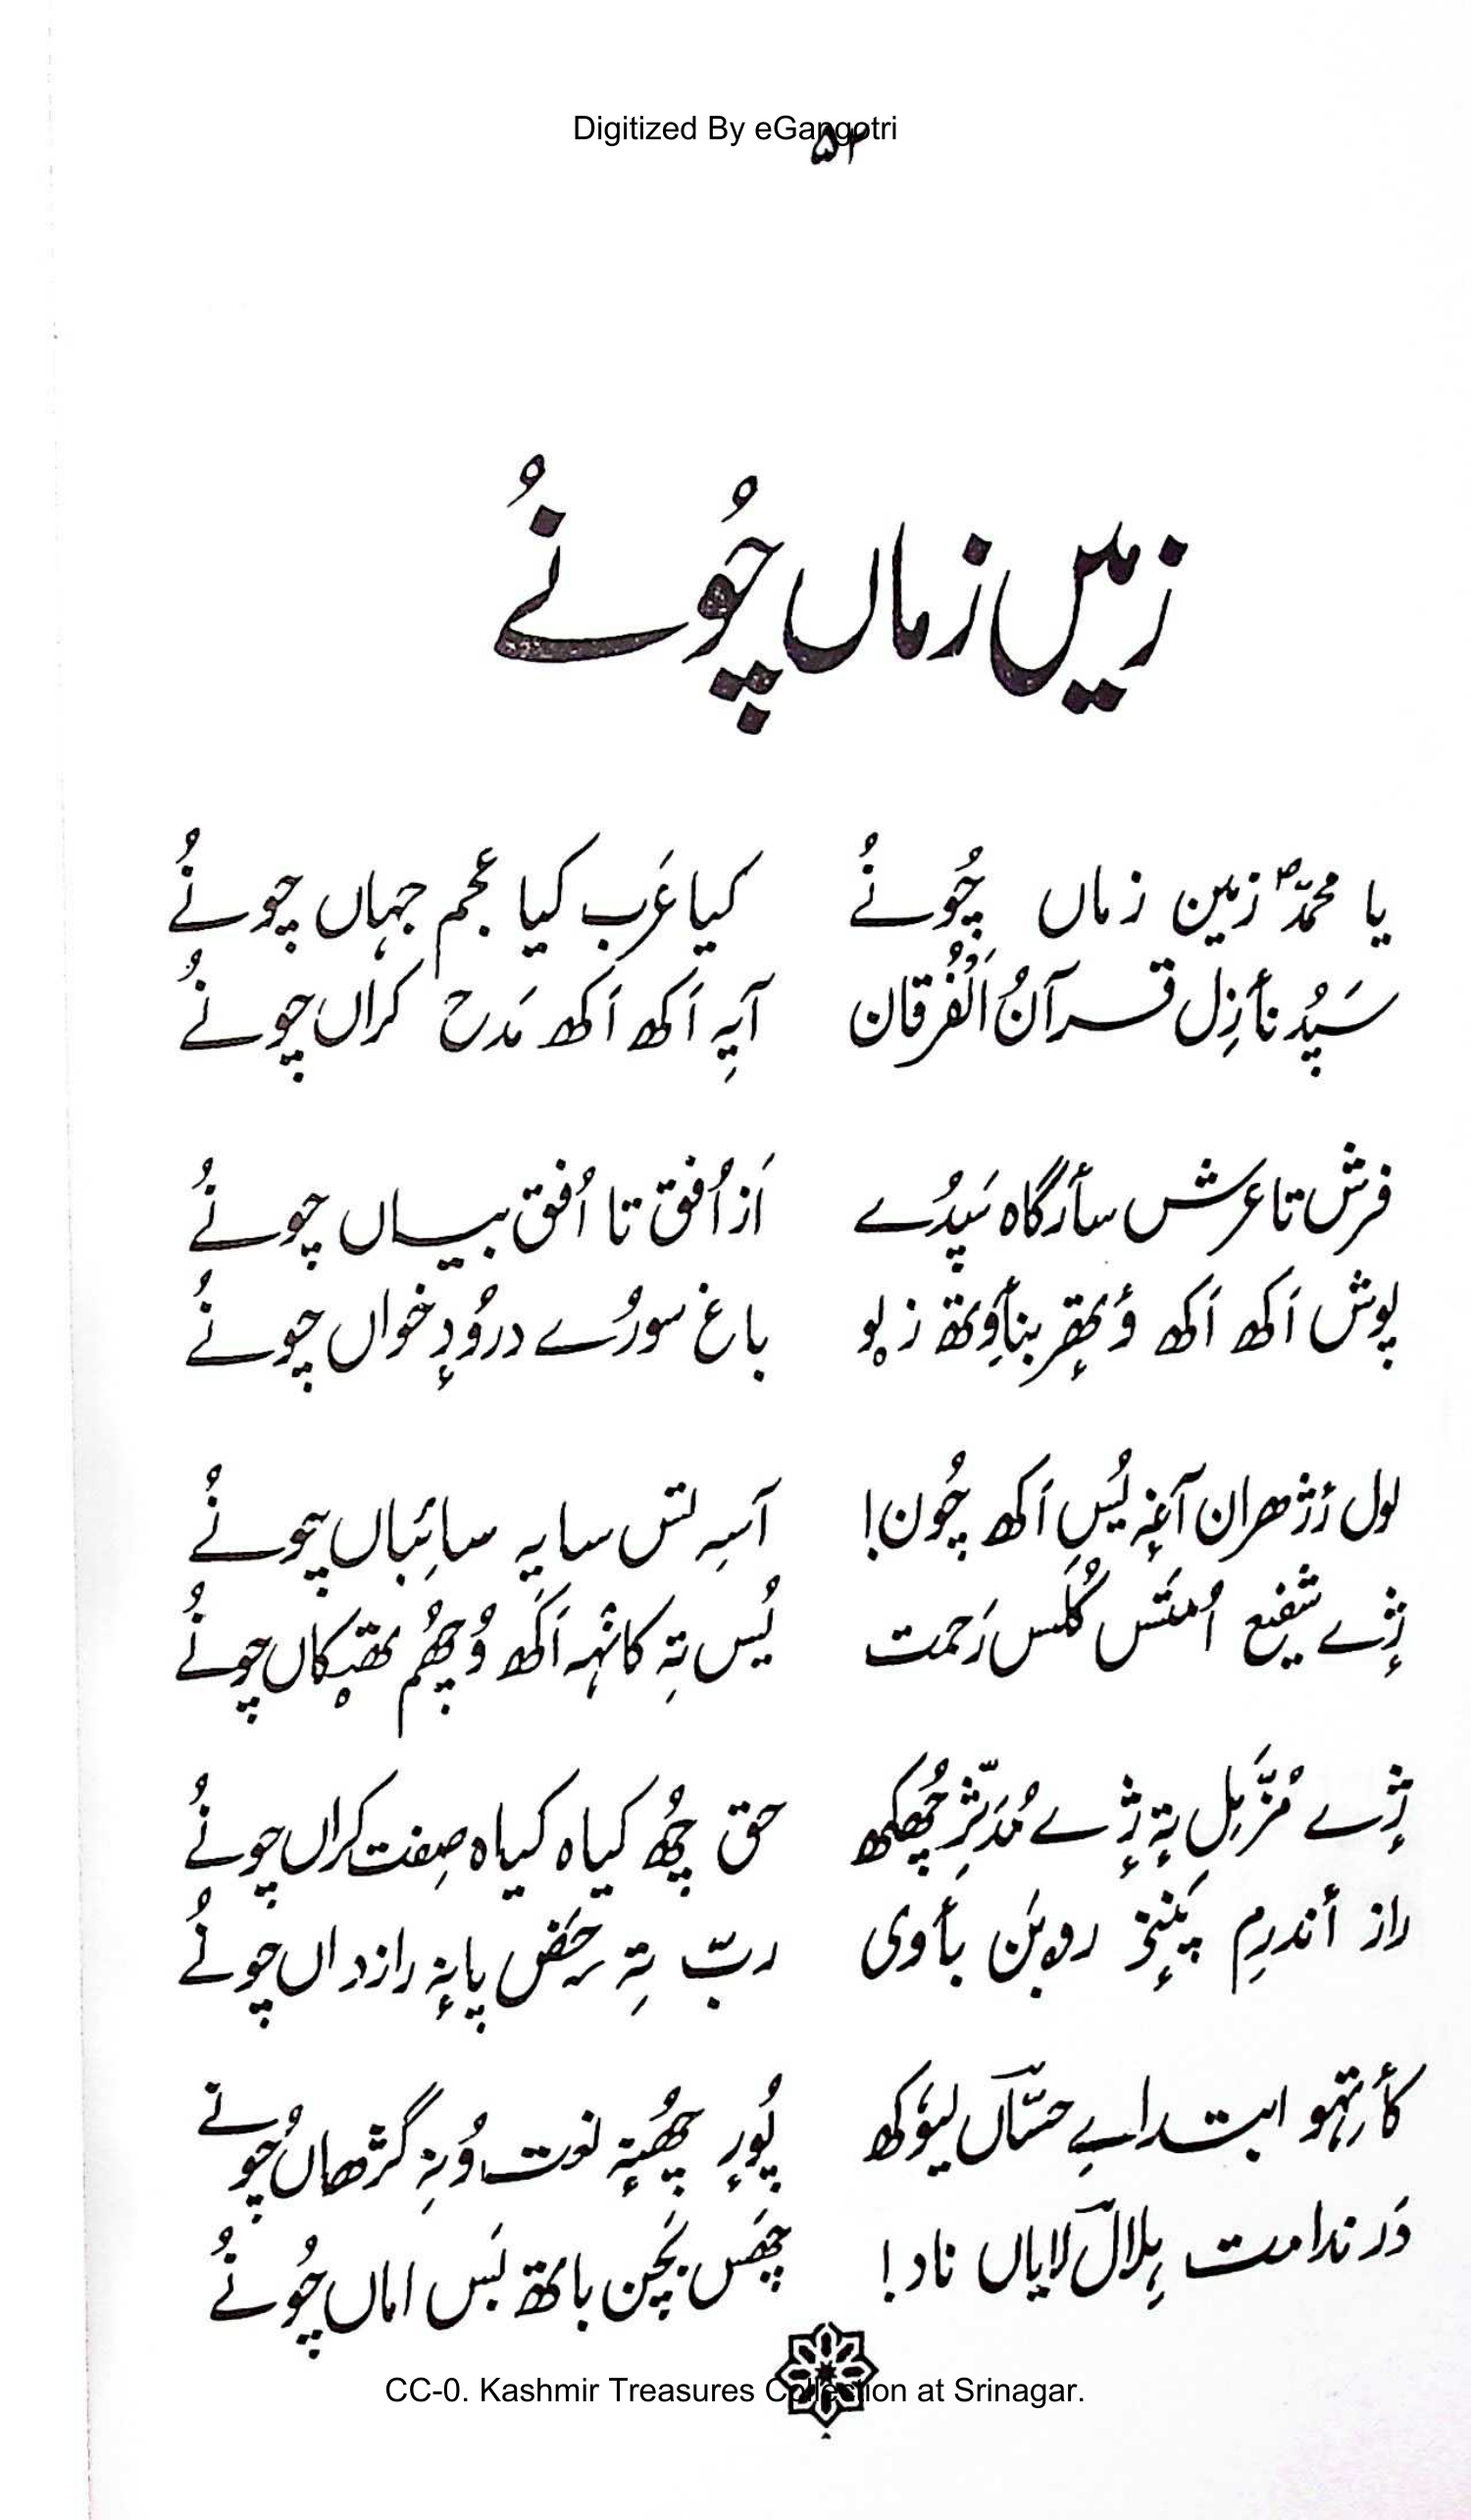 Digitized By eGangotri
۵۲
زمیں زماں چُونُے
یا محمدؐ زمین زماں چُونُے کیا عَرَب کیا عجم جہاں چونُے
سَپُد نٲزِل قرآنُ الْفُرقان آیہِ اَکھ اَکھ مَدح کراں چونُے
فرش تا عرش سٲرگاہ سَپدُے اَز اُفق تا اُفق بیاں چونُے
پوش اَکھ اَکھ وٕتھٕر بنٲوِتھ زٕو باغ سورُے درُودِ خواں چونُے
لول رٔژھران آغہٕ یُس اَکھ چُون! آسہِ تس سایہ سائباں چونُے
ژٕے شفیع اُمتَس کُلَس رَحمت یُس تہِ کانٛہہ اَکھ وُچھُم تھپکاں چونُے
ژٕے مُزَّمِل تہٕ ژٕے مُدَثِّر چُھکھ حق چُھ کیاہ کیاہ صِفت کراں چونُے
راز أندرِم پَنٕنۍ رویَن بٲوی ربّ تہِ محض پانہٕ رازداں چونُے
کٲرتہو ابتداےِ حسّاںؔ لیوٗکھ پُورٕ چھُنہٕ نعت وُنہِ گژھاں چُونُے
دَر ندامت ہِلالؔ لایاں ناد! چھَس بَچَن باتھ بَس اماں چُونُے
CC-0. Kashmir Treasures Collection at Srinagar.